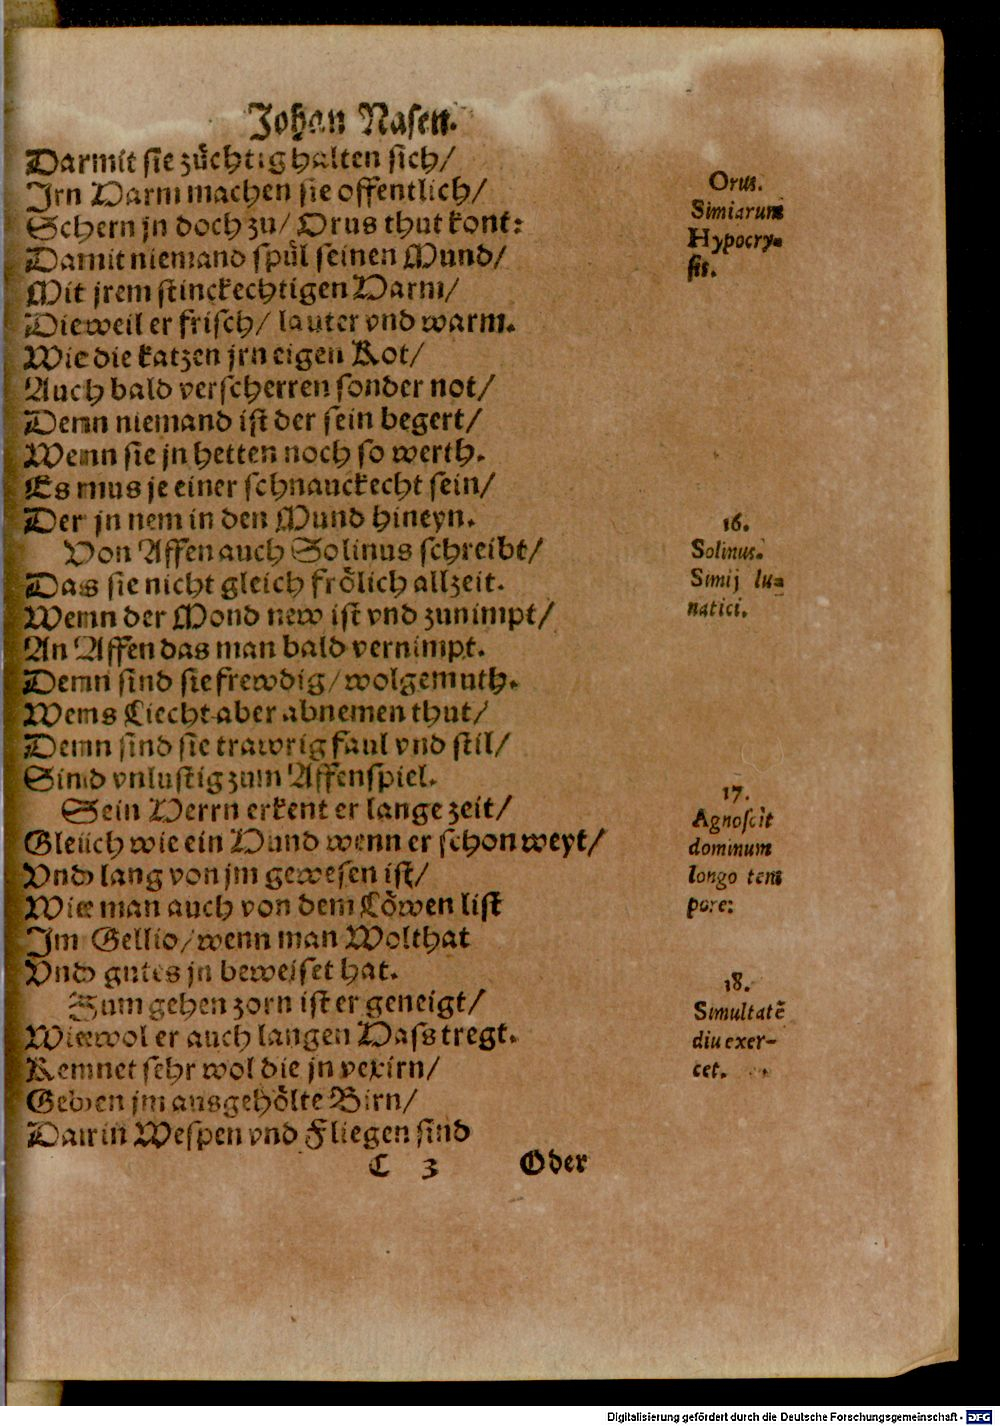 Johan Nasen.
Darmit sie züchtig halten sich/
Jrn Harm machen sie offentlich/
Schern jn doch zu/ Orus thut kont:
Damit niemand spül seinen Mund/
Mit jrem stinckechtigen Harm/
Dieweil er frisch/ lauter vnd warm.
Wie die katzen jrn eigen Kot/
Auch bald verscherren sonder not/
Denn niemand ist der sein begert/
Wenn sie jn hetten noch so werth.
Es mus je einer schnauckecht sein/
Der jn nem in den Mund hineyn.
Von Affen auch Solinus schreibt/
Das sie nicht gleich frölich allzeit.
Wenn der Mond new ist vnd zunimpt/
An Affen das man bald vernimpt.
Denn sind sie frewdig/ wolgemuth.
Wens Liecht aber abnemen thut/
Denn sind sie trawrig faul vnd stil/
Sind vnlustig zum Affenspiel.
Sein Herrn erkent er lange zeit/
Gleich wie ein Hund wenn er schon weyt/
Vnd lang von jm gewesen ist/
Wie man auch von dem Löwen list
Jm Gellio/ wenn man Wolthat
Vnd gutes jn beweiset hat.
Zum gehen zorn ist er geneigt/
Wiewol er auch langen Hass tregt.
Kennet sehr wol die jn vexirn/
Geben jm ausgehölte Birn/
Darin Wespen vnd Fliegen sind
C 3 Oder
Orus.
Simiarum
Hypocry-
sis.
16.
Solinus.
Simij lu-
natici.
17.
Agnoscit
dominum
longo tem
pore:
18.
Simultatē
diu exer-
cet.
Digitalisierung gefördert durch die Deutsche Forschungsgemeinschaft - DFG